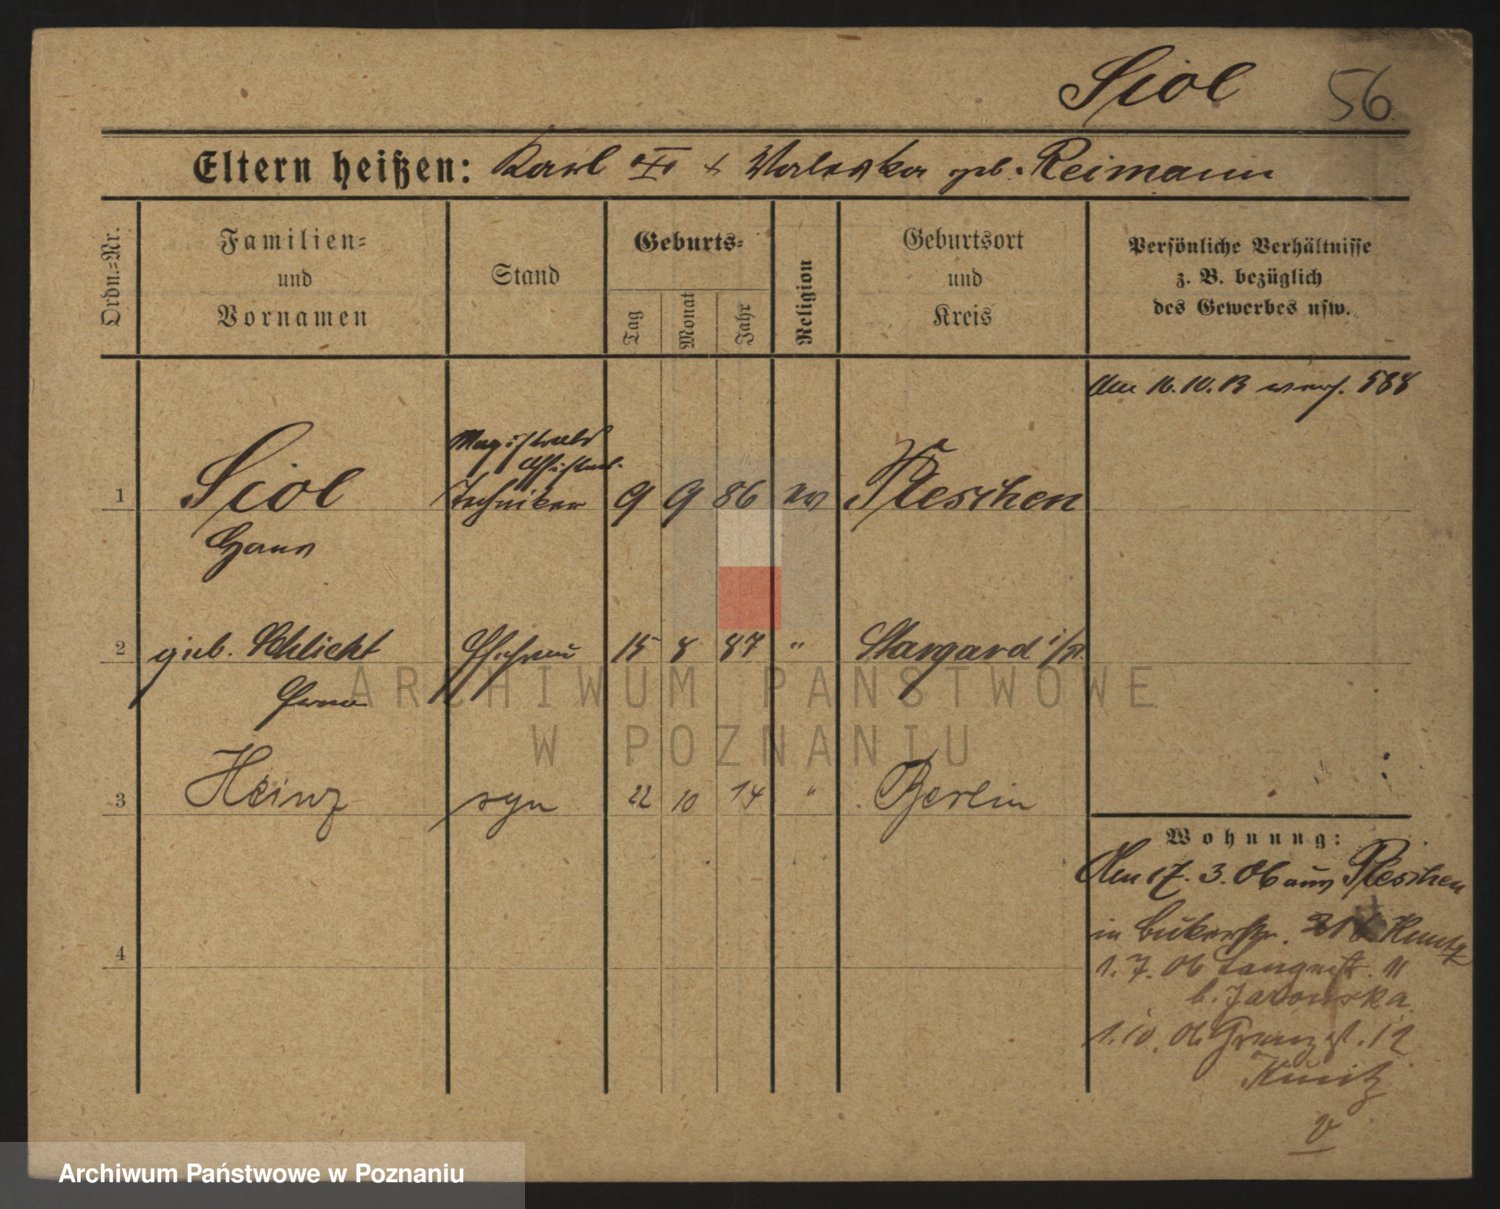 Siol 56
Eltern heißen: Karl u. Valeska geb. Reimann
Ordn.-Nr.
Familien-
und
Vornamen
Stand
Geburts-
Tag
Monat
Jahr
Religion
Geburtsort
und
Kreis
Persönliche Verhältnisse
z. B. bezüglich
des Gewerbes usw.
Am 16.10.13 588
Magistrats
Assistent
1 Siol Techniker 9 9 86 ev Pleschen
Hans
2 geb. Schlicht Ehefrau 15 8 87 " Stargard i/P.
Erna
3 Heinz 22 10 14 " Berlin
Wohnung:
Am 17. 3. 06 aus Pleschen
in Bukerstr.
4
1. 7. 06 11
b. Jaronska
1. 10. 06 12
ARCHIWUM PAŃSTWOWE
W POZNANIU
Archiwum Państwowe w Poznaniu